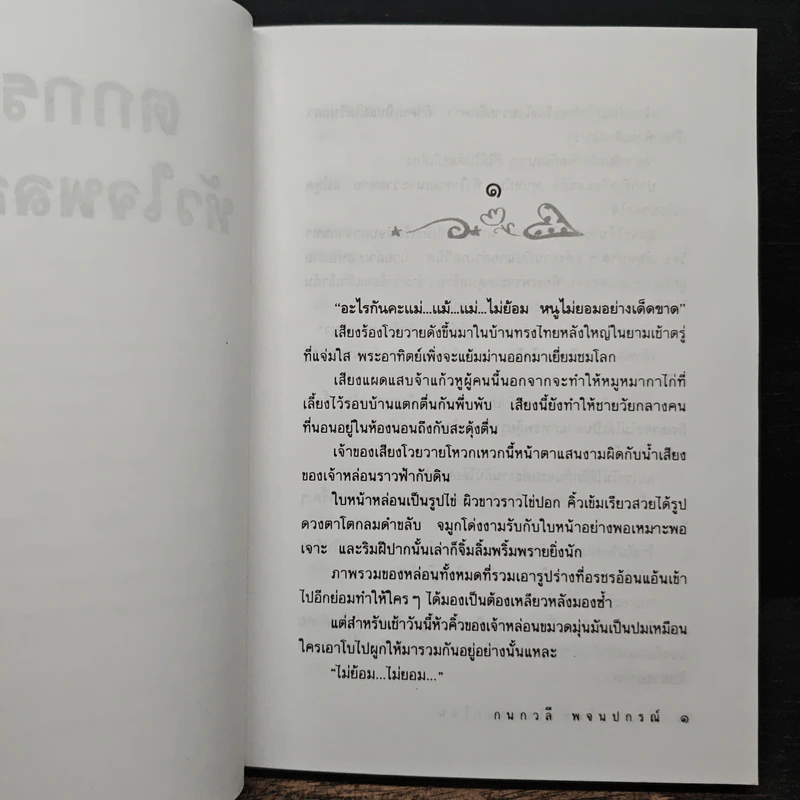 ๑
“อะไรกันคะแม่...แม้...แม่...ไม่ย้อม หนูไม่ยอมอย่างเด็ดขาด”
เสียงร้องโวยวายดังขึ้นมาในบ้านทรงไทยหลังใหญ่ในยามเช้าตรู่
ที่แจ่มใส พระอาทิตย์เพิ่งจะแย้มม่านออกมาเยี่ยมชมโลก
เสียงแผดแสบจ้าแก้วหูผู้คนนี้นอกจากจะทำให้หมูหมากาไก่ที่
เลี้ยงไว้รอบบ้านแตกตื่นกันพึ่บพับ เสียงนี้ยังทำให้ชายวัยกลางคน
ที่นอนอยู่ในห้องนอนถึงกับสะดุ้งตื่น
เจ้าของเสียงโวยวายโหวกเหวกนี้หน้าตาแสนงามผิดกับน้ำเสียง
ของเจ้าหล่อนราวฟ้ากับดิน
ใบหน้าหล่อนเป็นรูปไข่ ผิวขาวราวไข่ปอก คิ้วเข้มเรียวสวยได้รูป
ดวงตาโตกลมดำขลับ จมูกโด่งงามรับกับใบหน้าอย่างพอเหมาะพอ
เจาะ และริมฝีปากนั้นเล่าก็จิ้มลิ้มพริ้มพรายยิ่งนัก
ภาพรวมของหล่อนทั้งหมดที่รวมเอารูปร่างที่อรชรอ้อนแอ้นเข้า
ไปอีกย่อมทำให้ใครๆ ได้มองเป็นต้องเหลียวหลังมองซ้ำ
แต่สำหรับเช้าวันนี้หัวคิ้วของเจ้าหล่อนขมวดมุ่นมันเป็นปมเหมือน
ใครเอาโบไปผูกให้มารวมกันอยู่อย่างนั้นแหละ
“ไม่ย้อม...ไม่ยอม...”
กนกวลี พจนปกรณ์ ๑